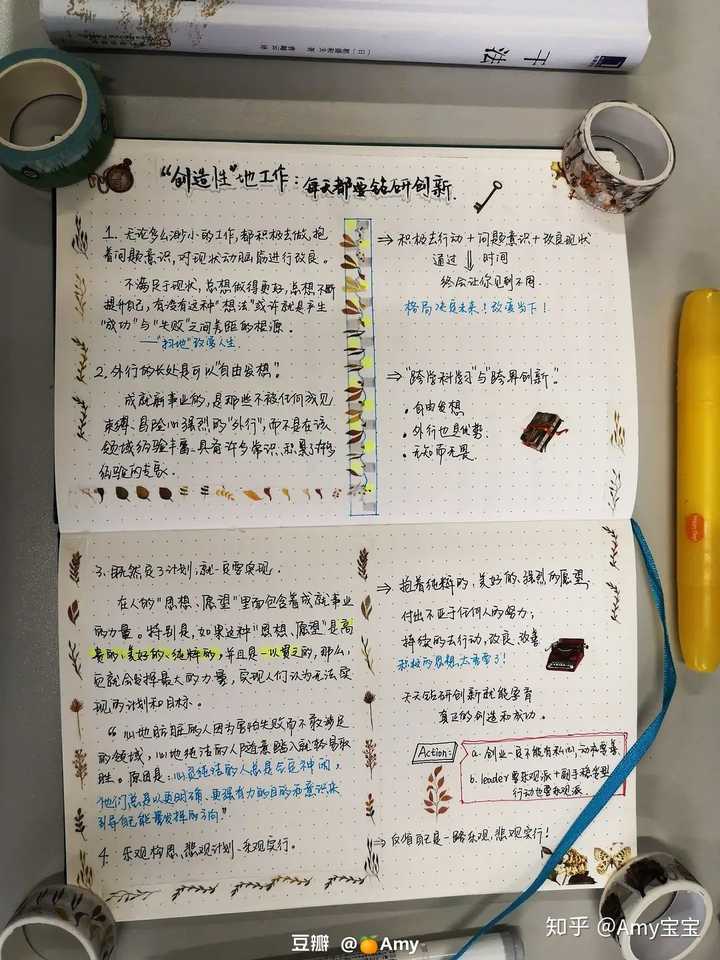 干法
"创造性"地工作：每天都要钻研创新
1. 无论多么渺小的工作，都积极去做，抱
着问题意识，对现状动脑筋进行改良。
不满足于现状，总想做得更好，总想不断
提升自己，有没有这种"想法"或许就是产生
"成功"与"失败"之间差距的根源。
——"扫地"改变人生
2. 外行的长处是可以"自由发想"。
成就新事业的，是那些不被任何成见
束缚、冒险心强烈的"外行"，而不是在该
领域经验丰富、具有许多常识、积累了
经验的专家。
⇒ 积极去行动 + 问题意识 + 改良现状
通过 时间
终会让你见到不同。
格局决定未来！改变当下！
⇒ "跨学科学习"与"跨界创新"。
· 自由发想
· 外行也是优势。
· 无知而无畏
3. 既然定了计划，就一定要实现。
在人的"思想、愿望"里面包含着成就事业
的力量。特别是，如果这种"思想、愿望"是高
贵的、美好的、纯粹的，并且是一以贯之的，那么，
它就会发挥最大的力量，实现人们认为无法实
现的计划和目标。
"心地肮脏的人因为害怕失败而不敢涉足
的领域，心地纯洁的人随意踏入就轻易取
胜。原因是：心灵纯洁的人总是
他们总是以更明确、更强有力的目的和意识来
引导自己能量发挥的方向。"
4. 乐观构思、悲观计划、乐观实行。
⇒ 抱着纯粹的、美好的、强烈的愿望；
付出不亚于任何人的努力；
持续的去行动，改良，改善
积极的思想，太重要了！
天天钻研创新就能孕育
真正的创造和成功。
Action:
a. 创业一定不能有私心，动机要善
b. leader要乐观派 + 副手稳当型
行动也要乐观派
⇒ 反省自己是一路乐观，悲观实行！
知乎 @Amy宝宝
豆瓣 @🍊Amy